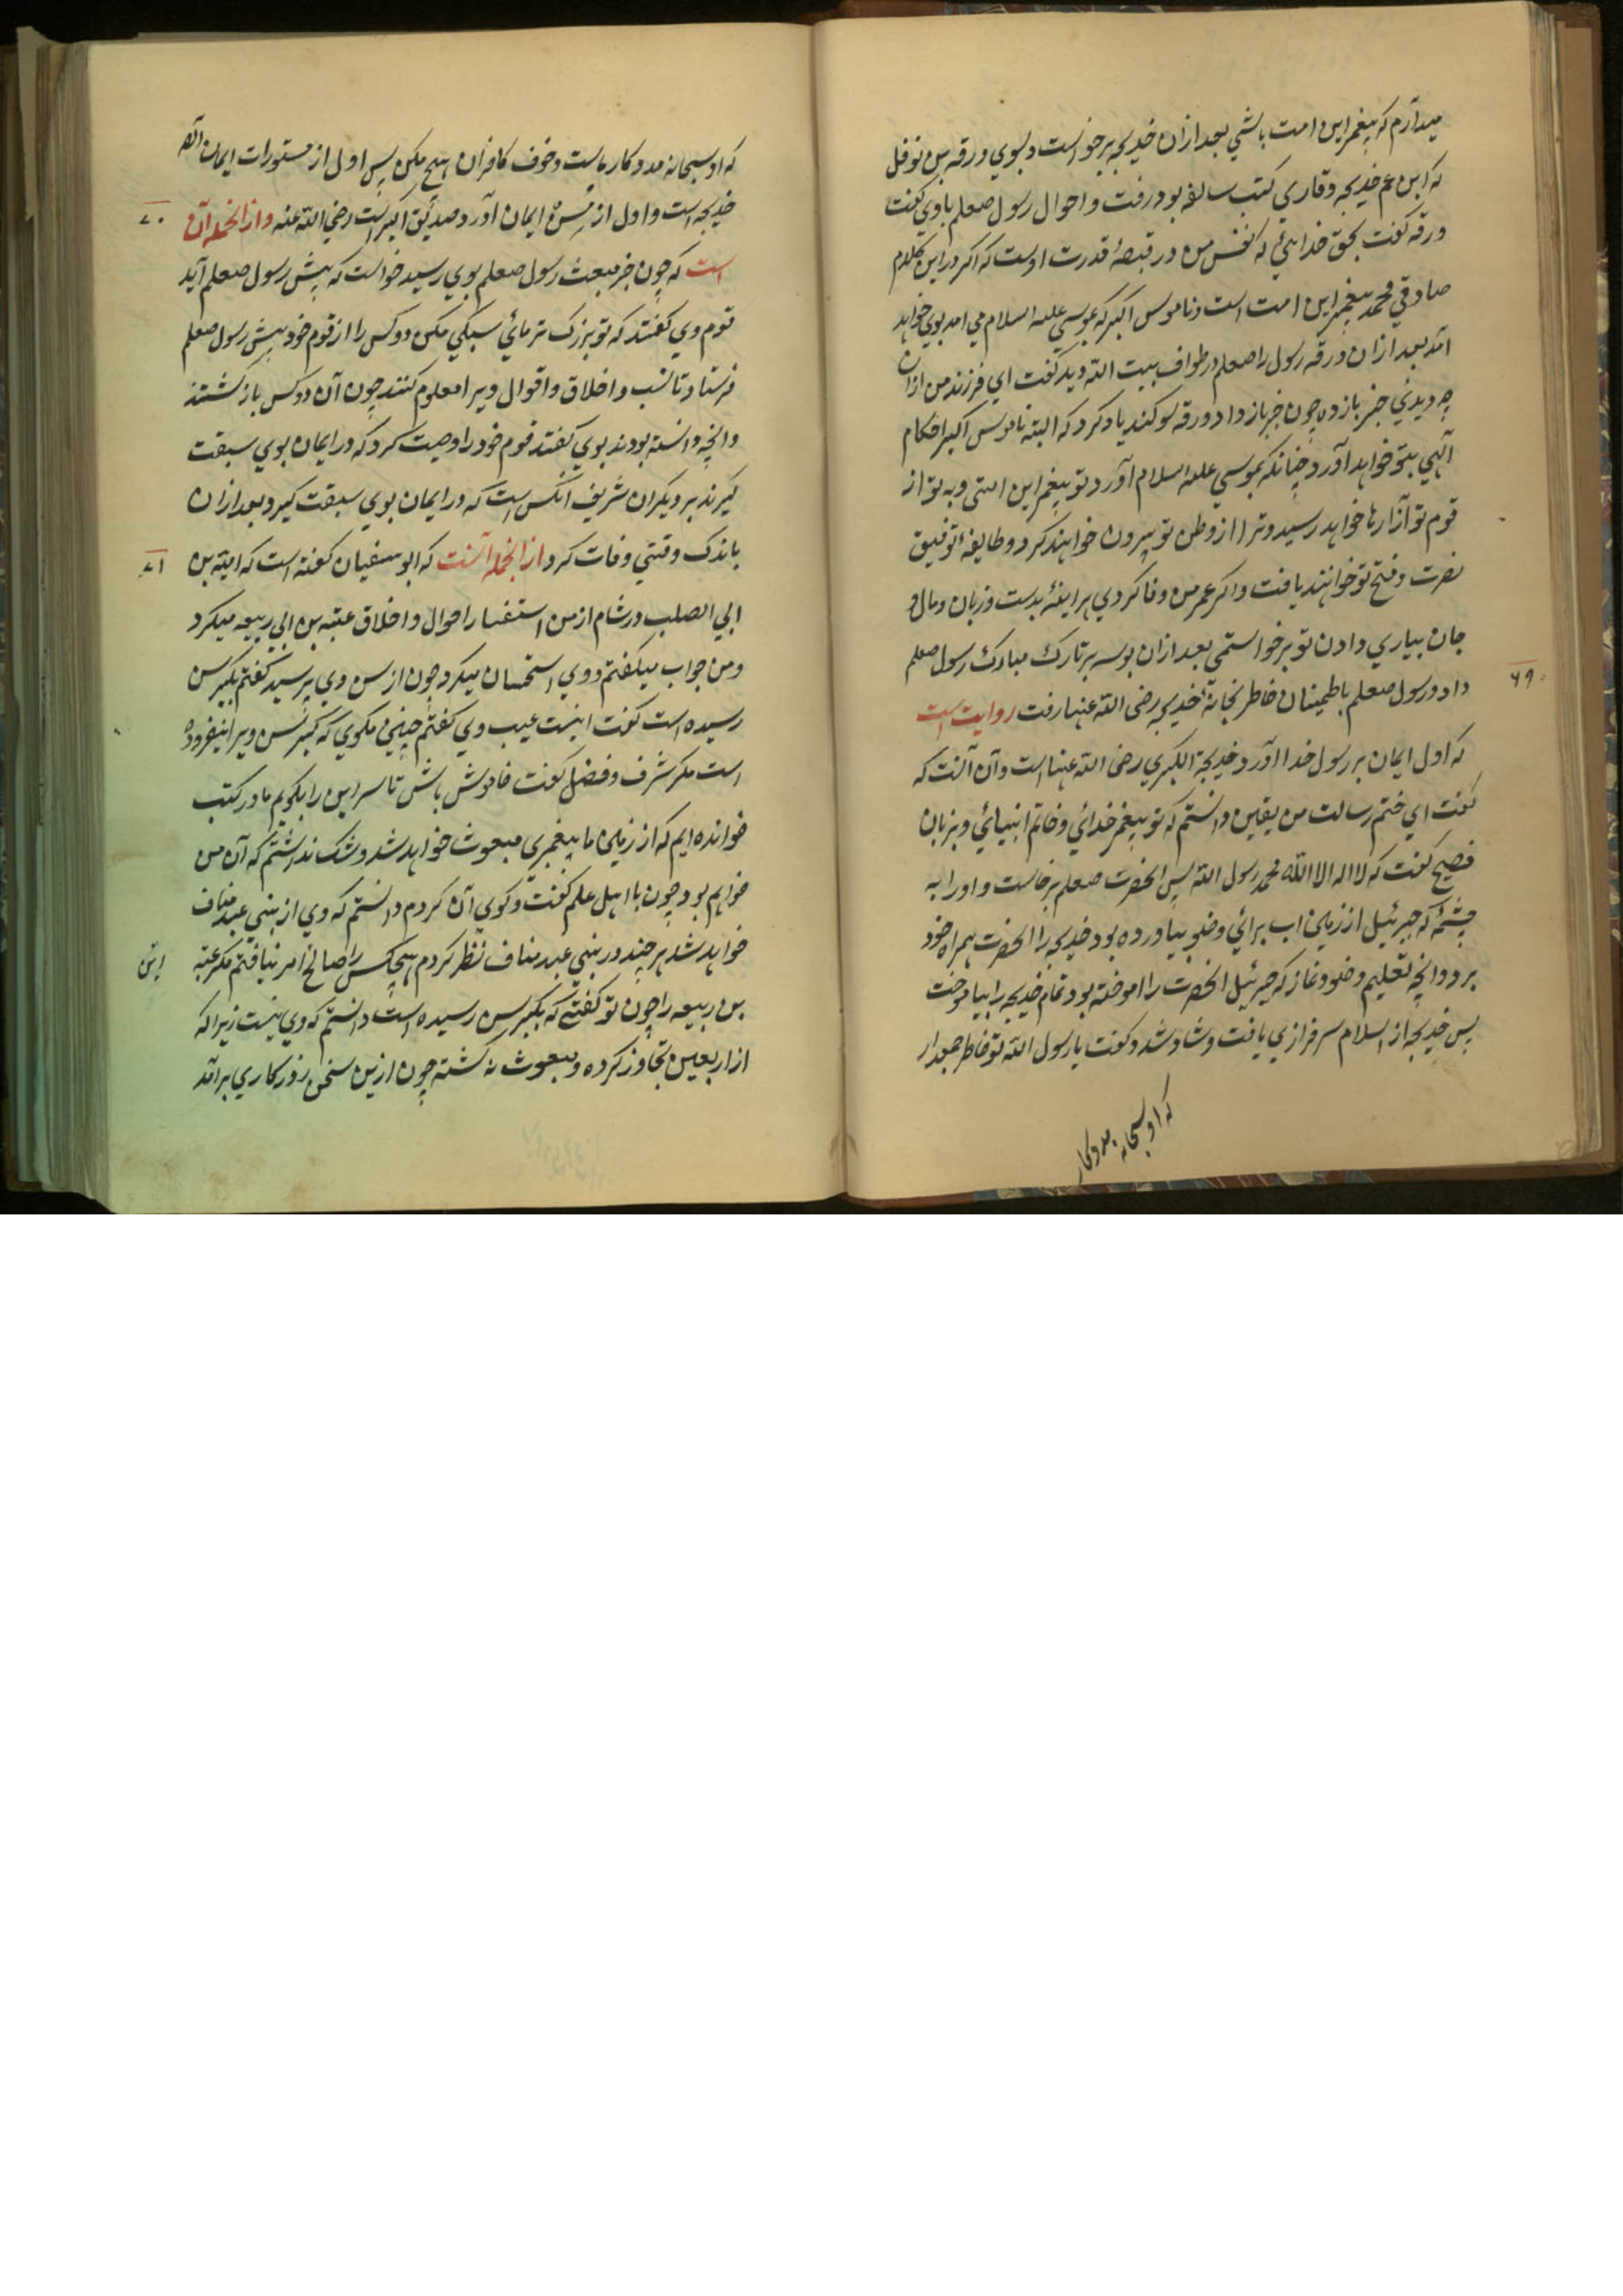 میدآرم که پیغمبر این امت باشی بعد ازان خدیجه برخواست و بسوی ورقه بن نوفل
که ابن عم خدیجه و قاری کتب سالفه بود رفت و احوال رسول صعلم باوی گفت
ورقه گفت بحق خدائی که نفس من در قبضهٔ قدرت اوست که اگر درین کلام
صادقی محمد پیغمبر این امت است و ناموس اکبر که بموسی علیه السلام می امد بوی خواهد
آمد بعد ازان ورقه رسول را صعلم در طواف بیت الله دید گفت ای فرزند من ازان
چه دیدئی خبر بازده چون خبر باز داد ورقه سوگند یاد کرد که البته ناموس اکبر احکام
آلهی بتو خواهد آورد چنانکه بموسی علیه السلام آورد و تو پیغمبر این امتی و به تو از
قوم تو آزارها خواهد رسید و ترا از وطن تو بیرون خواهند کرد و طایفهٔ توفیق
نصرت و فتح تو خوانند یافت و اگر عمر من وفا کردی هراینهٔ بدست و زبان و مال و
جان بیاری دادن تو برخواستمی بعد ازان بوسه بر تارک مبارک رسول صعلم
داد و رسول صعلم باطمینان خاطر بخانهٔ خدیجه رضی الله عنها رفت روایت است
۶۹
که اول ایمان بر رسول خدا آورد خدیجة الکبری رضی الله عنها است و آن آنست که
گفت ای ختم رسالت من یقین دانستم که تو پیغمبر خدائی و خاتم انبیائی و بزبان
فصیح گفت که لا اله الا الله محمد رسول الله پس انحضرت صعلم برخاست و او را به
چشمهٔ که جبرئیل از زمین اب برائی وضو بیاورده بود خدیجه را انحضرت همراه خود
برد و انچه تعلیم وضو و نماز که جبرئیل انحضرت را اموخته بود تمام خدیجه را بیاموخت
پس خدیجه از اسلام سرفرازی یافت و شاد شد و گفت یا رسول الله تو خاطر جمعدار
که او سبحانه مددکار
که او سبحانه مددکار ماست و خوف کافران هیچ مکن پس اولی از مستورات ایمان
خدیجه است و اول از ایمان آورد صدیق اکبر است رضی الله عنه و از انجمله آن
۷۰
است که چون خبر مبعث رسول صعلم بوی رسید خواست که پیش رسول صعلم آید
قوم وی گفتند که تو بزرگ تر مائی سبکی مکن دو کس را از قوم خود پیش رسول صعلم
فرستاد تا نسب و اخلاق و اقوال ویرا معلوم کنند چون آن دو کس باز گشتند
و انچه دانسته بودند بوی گفتند قوم خود را وصیت کرد که در ایمان بوی سبقت
گیرند بر دیگران شریف انکس است که در ایمان بوی سبقت گیرد و بعد ازان
باندک وقتی وفات کرد از انجمله آنست که ابو سفیان گفته است که امیة بن
۷۱
ابی الصلب در شام از من استفسار احوال و اخلاق عتبه بن ابی ربیعه میکرد
و من جواب میگفتم و وی استحسان میکرد چون از سن وی پرسید گفتم بکبر سن
رسیده است گفت اینست عیب وی گفتم چنین مگوی که کبر سن ویرا نیفزوده
است مگر شرف و فضل گفت خاموش باش تا سر این را بگویم ما در کتب
خوانده ایم که از زمین ما پیغمبری مبعوث خواهد شد و شک نداشتم که آن من
خواهم بود چون با اهل علم گفت و گوی آن کردم دانستم که وی از بنی عبد مناف
خواهد شد هر چند در بنی عبد مناف نظر کردم هیچکس را صالح امر نیافتم مگر عتبه
بن ربیعه را چون تو گفتی که بکبر سن رسیده است دانستم که وی نیست زیرا که
از اربعین تجاوز کرده و مبعوث نه گشته چون ازین سخن روزگاری برآمد